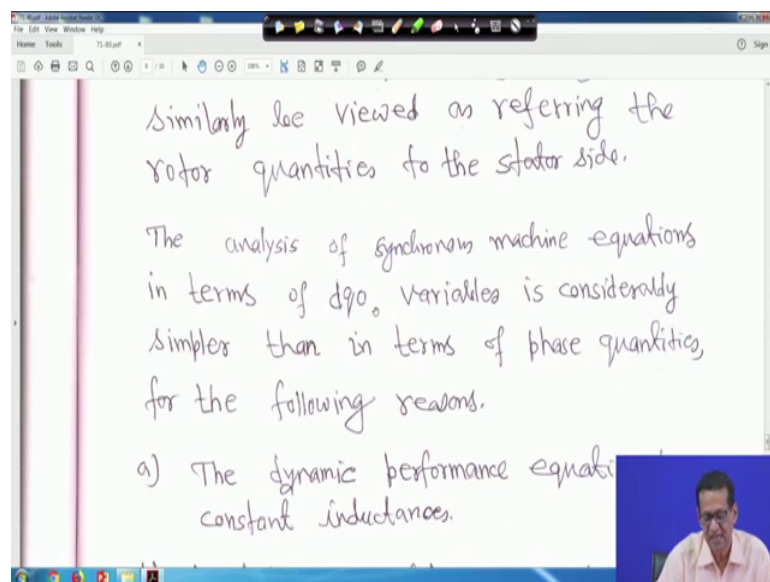 71-80.pdf - Adobe Acrobat Reader DC
File Edit View Window Help
Home Tools 71-80.pdf × Sign
similarly be viewed as referring the
rotor quantities to the stator side.
The analysis of synchronous machine equations
in terms of dqo variables is considerably
simpler than in terms of phase quantities,
for the following reasons.
a) The dynamic performance
constant inductances.